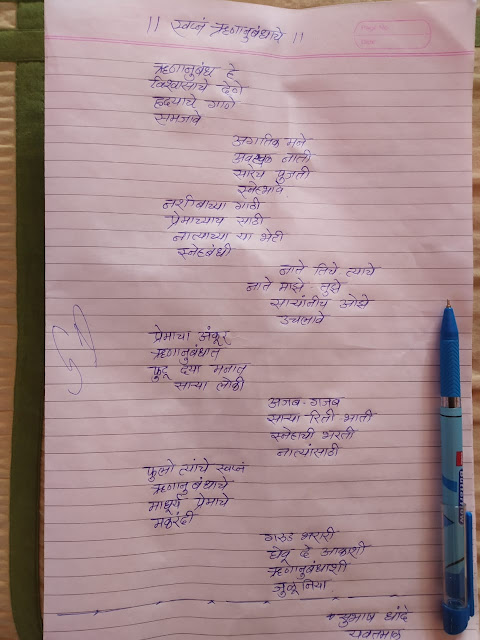 || स्वप्नं ऋणानुबंधाचे ||
ऋणानुबंध हे
विश्वासाचे देणे
हृदयाचे गाणे
समजावे
अगतिक मने
अवखळ नाती
सारेच पुजती
स्नेहभावे
नशीबाच्या गाठी
प्रेमाच्याच साठी
नात्याच्या या भेटी
स्नेहबंधी
नाते तिचे त्याचे
नाते माझे तुझे
साऱ्यांनीच ओझे
उचलावे
प्रेमाचा अंकूर
ऋणानुबंधात
फुटू दया मनात
साऱ्या लोकी
अजब-गजब
साऱ्या रिती भाती
स्नेहाची भरती
नात्यांसाठी
फुलो त्यांचे स्वप्नं
ऋणानुबंधाचे
माधूर्य प्रेमाचे
मकरंदी
गरुड भरारी
घेवू दे आकाशी
ऋणानुबंधाशी
जुळूनिया
सुभाष धांदे
यवतमाळ